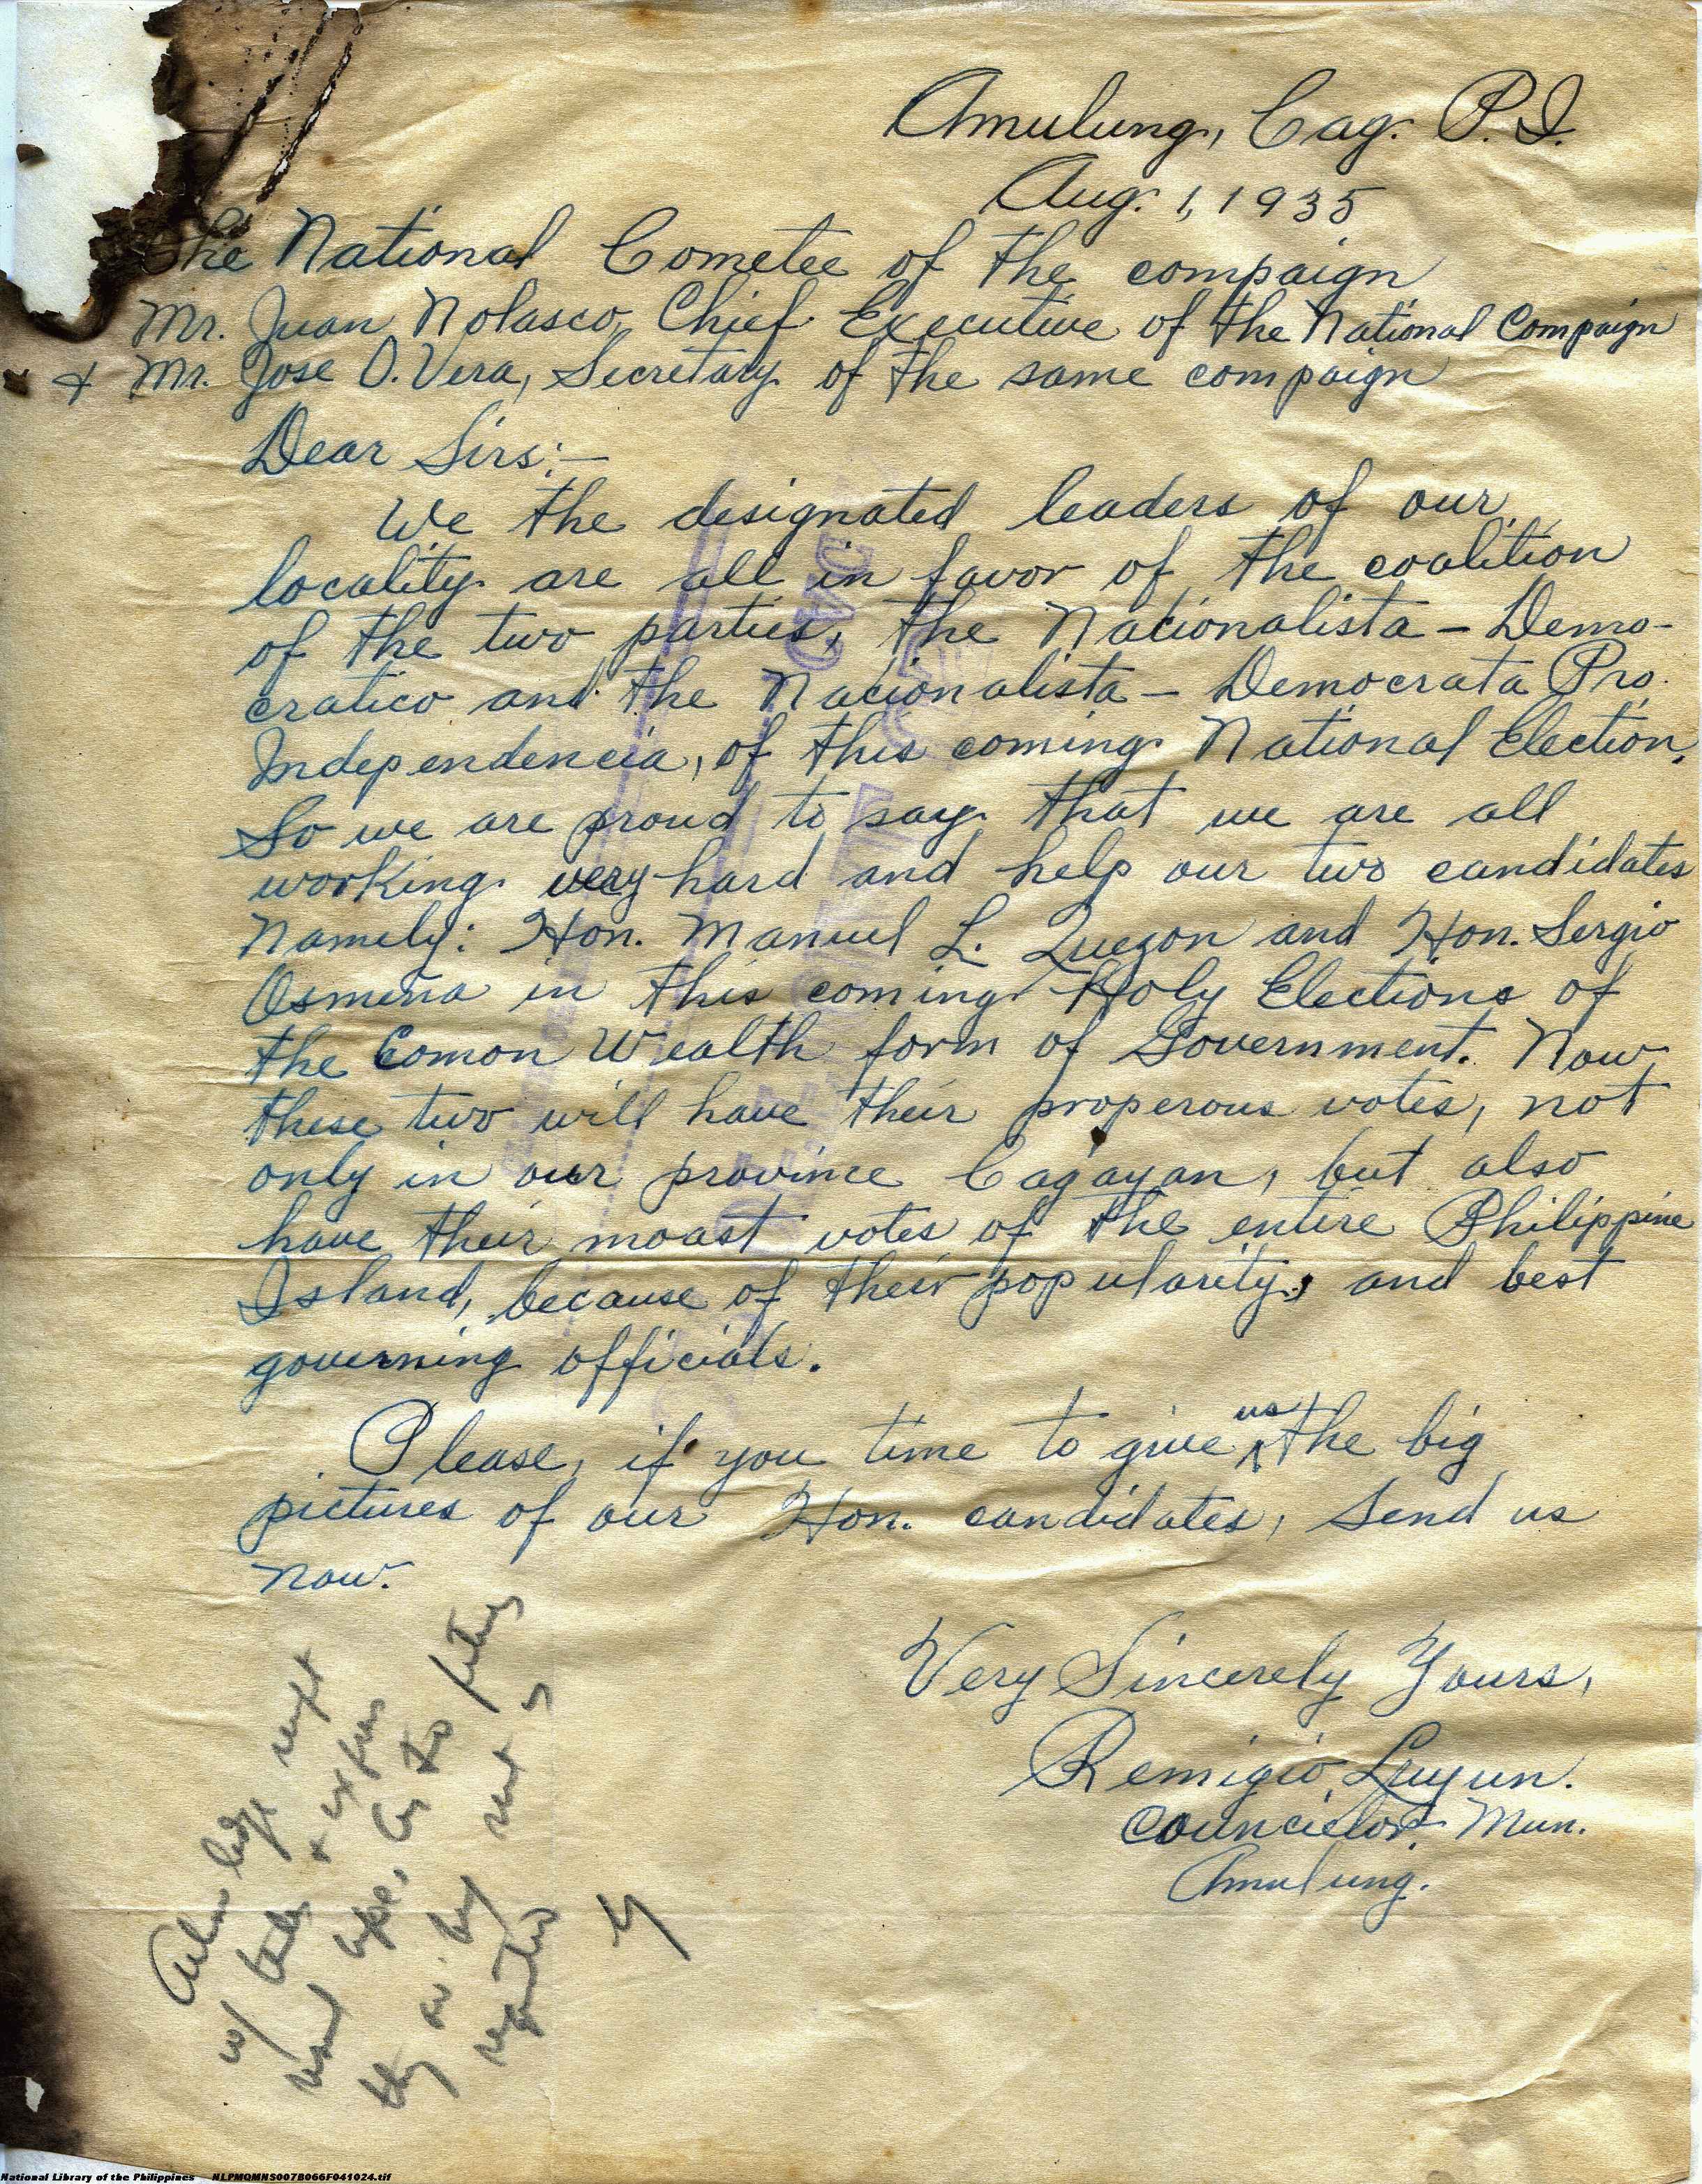 Amulung, Cag. P.I.
Aug. 1, 1935
The National Cometee of the compaign
Mr. Juan Nolasco, Chief Executive of the National Compaign
+ Mr. Jose O. Vera, Secretary of the same compaign
Dear Sirs:—
We the designated leaders of our
locality are all in favor of the coalition
of the two parties, the Nacionalista - Demo-
cratico and the Nacionalista - Democrata Pro.
Independencia, of this coming National Election.
So we are proud to say that we are all
working very hard and help our two candidates
Namely: Hon. Manuel L. Quezon and Hon. Sergio
Osmeña in this coming Holy Elections of
the Comon Wealth form of Government. Now
these two will have their properous votes, not
only in our province Cagayan, but also
have their moast votes of the entire Philippine
Island, because of their popularity, and best
governing officials.
Please, if you time to give us the big
pictures of our Hon. candidates, send us
now.
Very Sincerely Yours,
Remigio Luyun.
Councielor, Mun.
Amulung.
National Library of the Philippines NLPMQMNS007B066F041024.tif